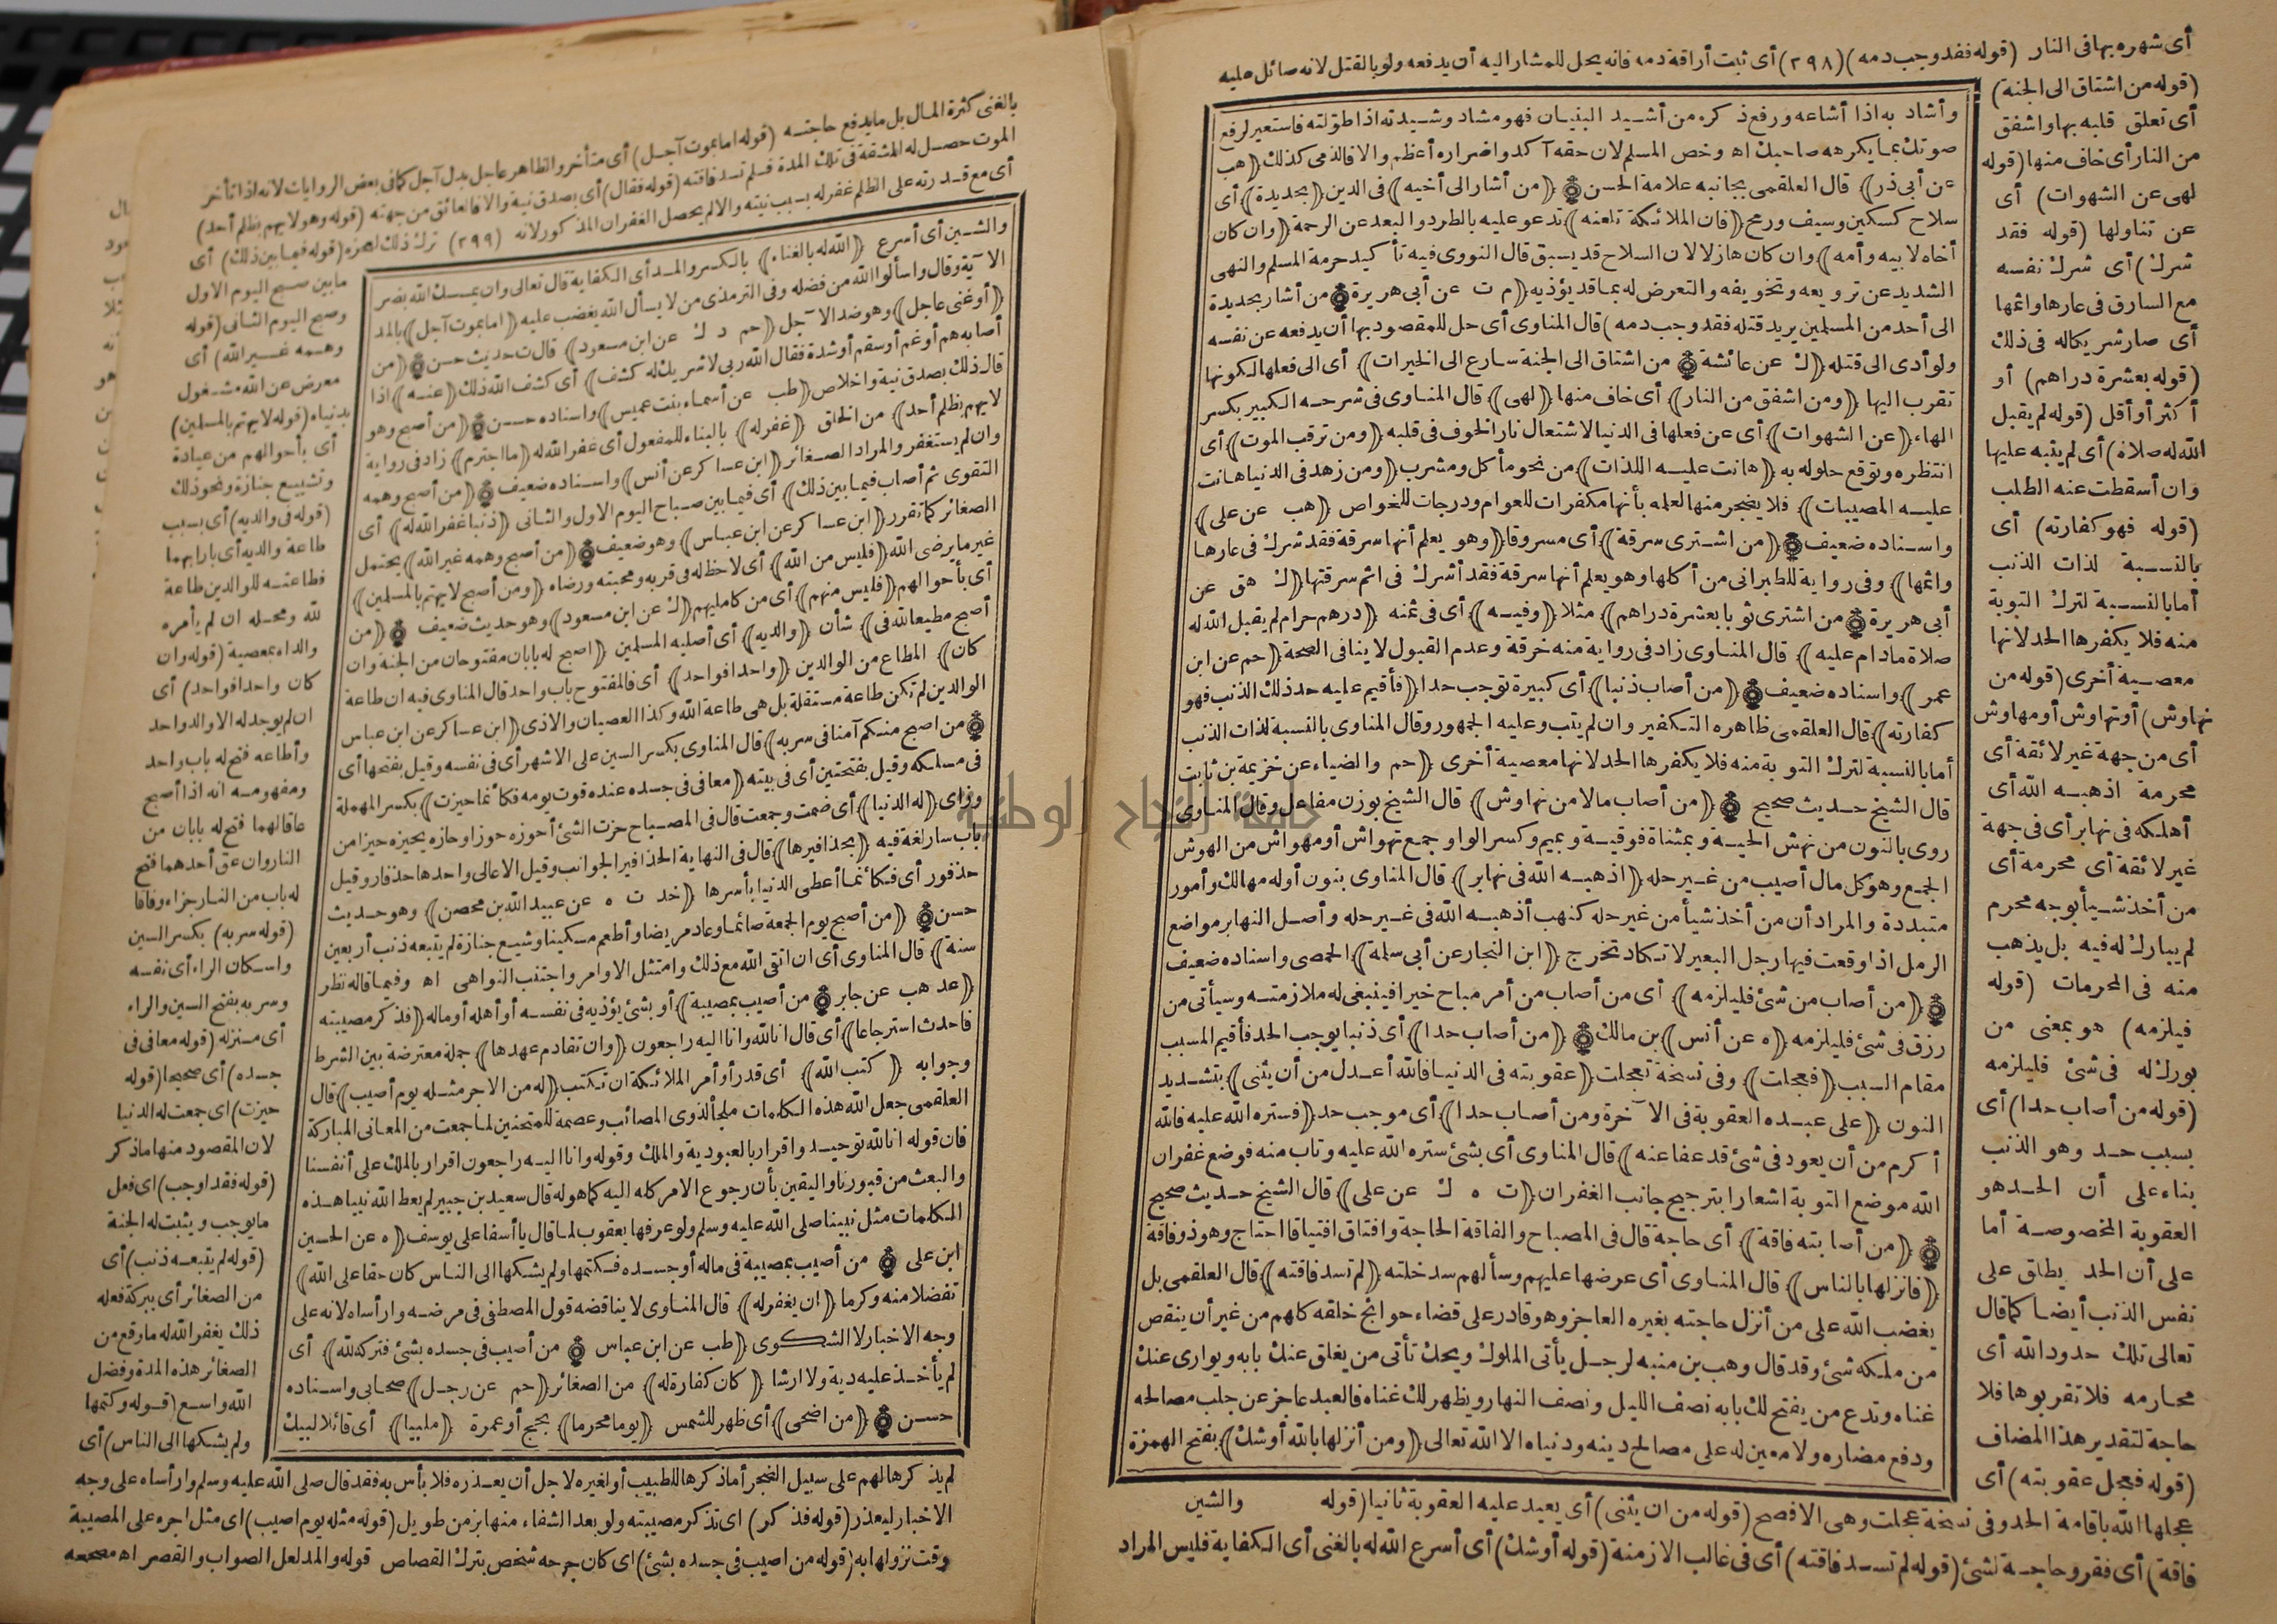 أى شهره بها فى النار (قوله فقد وجب دمه) (٢٩٨) أى ثبت أراقة دمه فانه يحل للمشار اليه أن يدفعه ولو بالقتل لانه صائل عليه
(قوله من اشتاق الى الجنة)
أى تعلق قلبه بها واشفق
من النار أى خاف منها (قوله
لهى عن الشهوات) أى
عن تناولها (قوله فقد
شرك) أى شرك نفسه
مع السارق فى عارها واثمها
أى صار شريكا له فى ذلك
(قوله بعشرة دراهم) أو
أكثر أو أقل (قوله لم يقبل
الله له صلاة) أى لم يثبه عليها
وان أسقطت عنه الطلب
(قوله فهو كفارته) أى
بالنسبة لذات الذنب
أما بالنسبة لترك التوبة
منه فلا يكفرها الحد لانها
معصية أخرى (قوله من
نهاوش) أو تهاوش أو مهاوش
أى من جهة غير لائقة أى
محرمة اذهبه الله أى
أهلكه فى نهابر أى فى جهة
غير لائقة أى محرمة أى
من أخذ شيأ بوجه محرم
لم يبارك له فيه بل يذهب
منه فى المحرمات (قوله
فيلزمه) هو بمعنى من
بورك له فى شئ فليلزمه
(قوله من أصاب حدا) أى
بسبب حد وهو الذنب
بناء على أن الحد هو
العقوبة المخصوصة أما
على أن الحد يطلق على
نفس الذنب أيضا كما قال
تعالى تلك حدود الله أى
محارمه فلا تقربوها فلا
حاجة لتقدير هذا المضاف
(قوله فعجل عقوبته) أى
وأشاد به اذا أشاعه ورفع ذكره من أشيد البنيان فهو مشاد وشيدته اذا طولته فاستعير لرفع
صوتك بما يكرهه صاحبك اه وخص المسلم لان حقه آكد واضراره أعظم والا فالذمى كذلك (هب
عن أبى ذر) قال العلقمى بجانبه علامة الحسن (من أشار الى أخيه) فى الدين (بحديدة) أى
سلاح كسكين وسيف ورمح (فان الملائكة تلعنه) تدعو عليه بالطرد والبعد عن الرحمة (وان كان
أخاه لابيه وأمه) وان كان هازلا لان السلاح قد يسبق قال النووى فيه تأكيد حرمة المسلم والنهى
الشديد عن ترويعه وتخويفه والتعرض له بما قد يؤذيه (م ت عن أبى هريرة من أشار بحديدة
الى أحد من المسلمين يريد قتله فقد وجب دمه) قال المناوى أى حل للمقصود بها أن يدفعه عن نفسه
ولو أدى الى قتله (ك عن عائشة من اشتاق الى الجنة سارع الى الخيرات) أى الى فعلها لكونها
تقرب اليها (ومن اشفق من النار) أى خاف منها (لهى) قال المناوى فى شرحه الكبير بكسر
الهاء (عن الشهوات) أى عن فعلها فى الدنيا لاشتعال نار الخوف فى قلبه (ومن ترقب الموت) أى
انتظره وتوقع حلوله به (هانت عليه اللذات) من نحو مأكل ومشرب (ومن زهد فى الدنيا هانت
عليه المصيبات) فلا يضجر منها لعلمه بأنها مكفرات للعوام ودرجات للخواص (هب عن على)
واسناده ضعيف (من اشترى سرقة) أى مسروقا (وهو يعلم أنها سرقة فقد شرك فى عارها
واثمها) وفى رواية للطبرانى من أكلها وهو يعلم أنها سرقة فقد أشرك فى اثم سرقتها (ك هق عن
أبى هريرة من اشترى ثوبا بعشرة دراهم) مثلا (وفيه) أى فى ثمنه (درهم حرام لم يقبل الله له
صلاة مادام عليه) قال المناوى زاد فى رواية منه خرقة وعدم القبول لا ينافى الصحة (حم عن ابن
عمر) واسناده ضعيف (من أصاب ذنبا) أى كبيرة توجب حدا (فأقيم عليه حد ذلك الذنب فهو
كفارته) قال العلقمى ظاهره التكفير وان لم يتب وعليه الجمهور وقال المناوى بالنسبة لذات الذنب
أما بالنسبة لترك التوبة منه فلا يكفرها الحد لانها معصية أخرى (حم والضياء عن خزيمة بن ثابت
قال الشيخ حديث صحيح (من أصاب مالا من نهاوش) قال الشيخ بوزن مفاعل وقال المناوى
روى بالنون من نهش الحية وبمثناة فوقية وبميم وكسر الواو جمع تهواش أو مهواش من الهوش
الجمع وهو كل مال أصيب من غير حله (اذهبه الله فى نهابر) قال المناوى بنون أوله مهالك وأمور
متبددة والمراد أن من أخذ شيأ من غير حله كنهب أذهبه الله فى غير حله وأصل النهابر مواضع
الرمل اذا وقعت فيها رجل البعير لا تكاد تخرج (ابن النجار عن أبى سلمة) الحمصى واسناده ضعيف
(من أصاب من شئ فليلزمه) أى من أصاب من أمر مباح خيرا فينبغى له ملازمته وسيأتى من
رزق فى شئ فليلزمه (ه عن أنس) بن مالك (من أصاب حدا) أى ذنبا يوجب الحد فأقيم المسبب
مقام السبب (فعجلت) وفى نسخة تعجلت (عقوبته فى الدنيا فالله أعدل من أن يثنى) بتشديد
النون (على عبده العقوبة فى الآخرة ومن أصاب حدا) أى موجب حد (فستره الله عليه فالله
أكرم من أن يعود فى شئ قد عفا عنه) قال المناوى أى بشئ ستره الله عليه وتاب منه فوضع غفران
الله موضع التوبة اشعارا بترجيح جانب الغفران (ت ه ك عن على) قال الشيخ حديث صحيح
(من أصابته فاقة) أى حاجة قال فى المصباح والفاقة الحاجة وافتاق افتياقا احتاج وهو ذو فاقة
(فانزلها بالناس) قال المناوى أى عرضها عليهم وسألهم سد خلته (لم تسد فاقته) قال العلقمى بل
يغضب الله على من أنزل حاجته بغيره العاجز وهو قادر على قضاء حوائج خلقه كلهم من غير أن ينقص
من ملكه شئ وقد قال وهب بن منبه لرجل يأتى الملوك ويحك تأتى من يغلق عنك بابه ويوارى عنك
غناه وتدع من يفتح لك بابه نصف الليل ونصف النهار ويظهر لك غناه فالعبد عاجز عن جلب مصالحه
ودفع مضاره ولا معين له على مصالح دينه ودنياه الا الله تعالى (ومن أنزلها بالله أوشك) بفتح الهمزة
عجلها الله باقامة الحد وفى نسخة عجلت وهى الافصح (قوله من ان يثنى) أى يعيد عليه العقوبة ثانيا (قوله والشين
فاقة) أى فقر وحاجة لشئ (قوله لم تسد فاقته) أى فى غالب الازمنة (قوله أوشك) أى أسرع الله له بالغنى أى الكفاية فليس المراد
بالغنى كثرة المال بل ما يدفع حاجته (قوله اما بموت آجل) أى متأخر والظاهر عاجل بدل آجل كما فى بعض الروايات لانه اذا تأخر
الموت حصل له المشقة فى تلك المدة فلم تسد فاقته (قوله فقال) أى بصدق نية والا فالعائق من جهته (قوله وهو لا يهم بظلم أحد)
أى مع قدرته على الظلم غفر له بسبب نيته والا لم يحصل الغفران المذكور لانه (٢٩٩) ترك ذلك لعجزه (قوله فيما بين ذلك) أى
والشين أى أسرع (الله له بالغناء) بالكسر والمد أى الكفاية قال تعالى وان يمسك الله بضر
الآية وقال واسألوا الله من فضله وفى الترمذى من لا يسأل الله يغضب عليه (اما بموت آجل) بالمد
(أو غنى عاجل) وهو ضد الآجل (حم د ك عن ابن مسعود) قال ت حديث حسن (من
أصابه هم أو غم أو سقم أو شدة فقال الله ربى لا شريك له كشف) أى كشف الله ذلك (عنه) اذا
قال ذلك بصدق نية واخلاص (طب عن أسماء بنت عميس) واسناده حسن (من أصبح وهو
لا يهم بظلم أحد) من الخلق (غفر له) بالبناء للمفعول أى غفر الله له (ما اجترم) زاد فى رواية
وان لم يستغفر والمراد الصغائر (ابن عساكر عن أنس) واسناده ضعيف (من أصبح وهمه
التقوى ثم أصاب فيما بين ذلك) أى فيما بين صباح اليوم الاول والثانى (ذنبا غفر الله له) أى
الصغائر كما تقرر (ابن عساكر عن ابن عباس) وهو ضعيف (من أصبح وهمه غير الله) يحتمل
غير ما يرضى الله (فليس من الله) أى لا حظ له فى قربه ومحبته ورضاه (ومن أصبح لا يهتم بالمسلمين)
أى بأحوالهم (فليس منهم) أى من كامليهم (ك عن ابن مسعود) وهو حديث ضعيف (من
أصبح مطيعا لله فى) شأن (والديه) أى أصليه المسلمين (اصبح له بابان مفتوحان من الجنة وان
كان) المطاع من الوالدين (واحدا فواحد) أى فالمفتوح باب واحد قال المناوى فيه ان طاعة
الوالدين لم تكن طاعة مستقلة بل هى طاعة الله وكذا العصيان والاذى (ابن عساكر عن ابن عباس
من اصبح منكم آمنا فى سربه) قال المناوى بكسر السين على الاشهر أى فى نفسه وقيل بفتحها أى
فى مسلكه وقيل بفتحتين أى فى بيته (معافى فى جسده عنده قوت يومه فكأنما حيزت) بكسر المهملة
وزاى (له الدنيا) أى ضمت وجمعت قال فى المصباح حزت الشئ أحوزه حوزا وحازه يحيزه حيزا من
باب سار لغة فيه (بحذافيرها) قال فى النهاية الحذافير الجوانب وقيل الاعالى واحدها حذفار وقيل
حذفور أى فكأنما أعطى الدنيا بأسرها (خد ت ه عن عبيد الله بن محصن) وهو حديث
حسن (من أصبح يوم الجمعة صائما وعاد مريضا وأطعم مسكينا وشيع جنازة لم يتبعه ذنب أربعين
سنة) قال المناوى أى ان اتقى الله مع ذلك وامتثل الاوامر واجتنب النواهى اه وفيما قاله نظر
(عد هب عن جابر من أصيب بمصيبة) أو بشئ يؤذيه فى نفسه أو أهله أو ماله (فذكر مصيبته
فاحدث استرجاعا) أى قال انا لله وانا اليه راجعون (وان تقادم عهدها) جملة معترضة بين الشرط
وجوابه (كتب الله) أى قدر أو أمر الملائكة ان تكتب (له من الاجر مثله يوم أصيب) قال
العلقمى جعل الله هذه الكلمات ملجأ لذوى المصائب وعصمة للممتحنين لما جمعت من المعانى المباركة
فان قوله انا لله توحيد واقرار بالعبودية والملك وقوله وانا اليه راجعون اقرار بالملك على أنفسنا
والبعث من قبورنا واليقين بأن رجوع الامر كله اليه كما هو له قال سعيد بن جبير لم يعط الله نبيا هذه
الكلمات مثل نبينا صلى الله عليه وسلم ولو عرفها يعقوب لما قال يا أسفا على يوسف (ه عن الحسين
ابن على من أصيب بمصيبة فى ماله أو جسده فكتمها ولم يشكها الى الناس كان حقا على الله)
تفضلا منه وكرما (ان يغفر له) قال المناوى لا يناقضه قول المصطفى فى مرضه وارأساه لانه على
وجه الاخبار لا الشكوى (طب عن ابن عباس من أصيب فى جسده بشئ فتركه لله) أى
لم يأخذ عليه دية ولا ارشا (كان كفارة له) من الصغائر (حم عن رجل) صحابى واسناده
حسن (من اضحى) أى ظهر للشمس (يوما محرما) بحج أو عمرة (ملبيا) أى قائلا لبيك
مابين صبح اليوم الاول
وصبح اليوم الثانى (قوله
وهمه غير الله) أى
معرض عن الله مشغول
بدنياه (قوله لا يهتم بالمسلمين)
أى بأحوالهم من عيادة
وتشييع جنازة ونحو ذلك
(قوله فى والديه) أى بسبب
طاعة والديه أى بارا بهما
فطاعته للوالدين طاعة
لله ومحله ان لم يأمره
والداه بمعصية (قوله وان
كان واحدا فواحد) أى
ان لم يوجد له الا والد واحد
وأطاعه فتح له باب واحد
ومفهومه انه اذا أصبح
عاقا لهما فتح له بابان من
النار وان عق أحدهما فتح
له باب من النار جزاء وفاقا
(قوله سربه) بكسر السين
واسكان الراء أى نفسه
وسربه بفتح السين والراء
أى منزله (قوله معافى فى
جسده) أى صحيحا (قوله
حيزت) اى جمعت له الدنيا
لان المقصود منها ماذكر
(قوله فقد اوجب) اى فعل
مايوجب ويثبت له الجنة
(قوله لم يتبعه ذنب) أى
من الصغائر أى ببركة فعله
ذلك يغفر الله له ما وقع من
الصغائر هذه المدة وفضل
الله واسع (قوله وكتمها
ولم يشكها الى الناس) أى
لم يذكرها لهم على سبيل الضجر أما ذكرها للطبيب أو لغيره لاجل أن يعذره فلا بأس به فقد قال صلى الله عليه وسلم وارأساه على وجه
الاخبار ليعذر (قوله فذكر) اى تذكر مصيبته ولو بعد الشفاء منها بزمن طويل (قوله مثله يوم اصيب) اى مثل اجره على المصيبة
وقت نزولها به (قوله من اصيب فى جسده بشئ) اى كان جرحه شخص بترك القصاص قوله والمد لعل الصواب والقصر اه مصححه
جامعة النجاح الوطنية